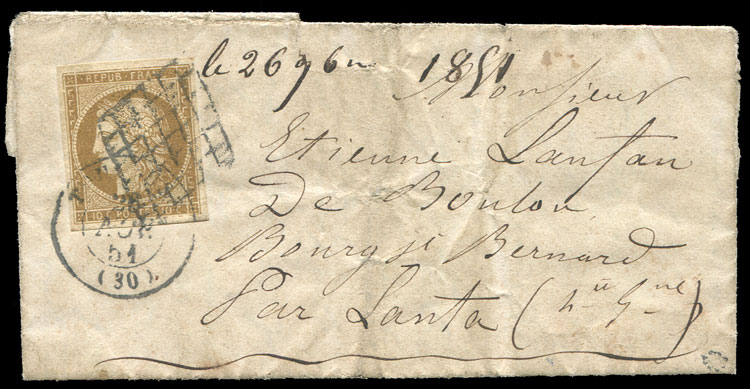 REPUB FRANC
le 26 9bre 1851
10 10
Monsieur
Etienne Lanfan
De Boulou
Bourg St Bernard
Par Lanta (hte Gne)
51
(30)